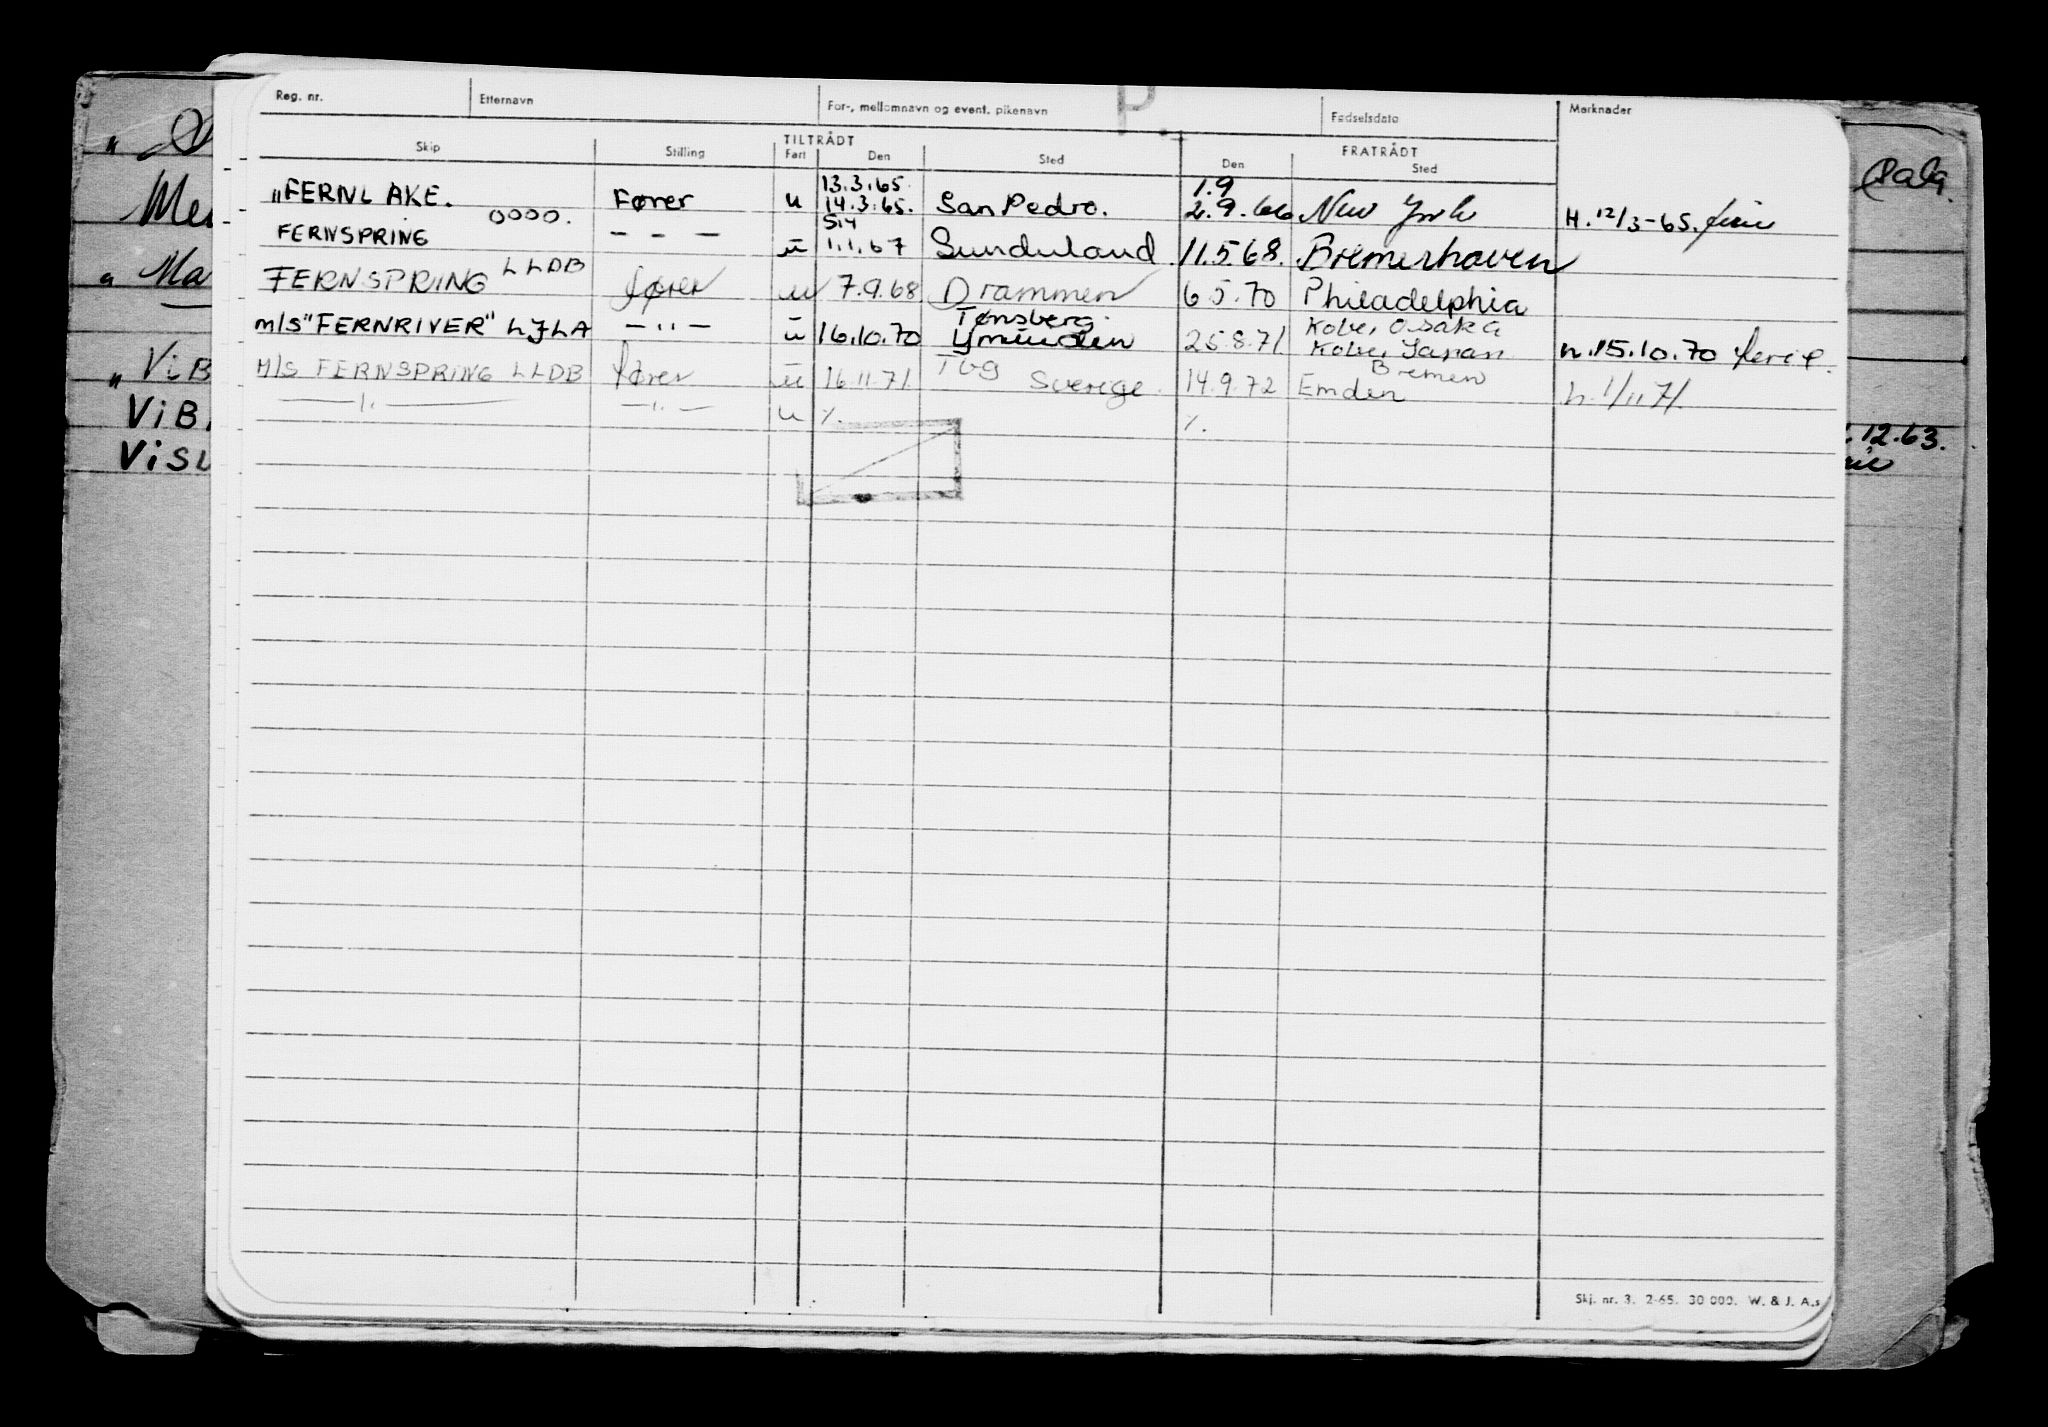 Reg. nr. Etternavn For-, mellomnavn og event. pikenavn P. Fødselsdato Merknader
Skip Stilling TILTRÅDT Fart Den Sted FRATRÅDT Den Sted
13.3.65. 1.9
"FERNLAKE. Fører u 14.3.65. San Pedro. 2.9.66 New York H. 12/3-65. ferie
OOOO.
FERNSPRING — - — u 1.1.67 Sunderland 11.5.68. Bremerhaven
FERNSPRING LLDB fører u 7.9.68 Drammen 6.5.70 Philadelphia
Tønsberg. Kobe, Osaka
m/s "FERNRIVER" LJLA — " — u 16.10.70 Ymuiden 25.8.71 Kobe, Japan h. 15.10.70 ferie.
Tbg Bremen
M/S FERNSPRING LLDB fører u 16.11.71 Sverige. 14.9.72 Emden h. 1/11 71.
— " — — " — u %. %.
" ViB
ViB
ViSU
12.63.
Skj. nr. 3. 2-65. 30 000. W. & J. A.s